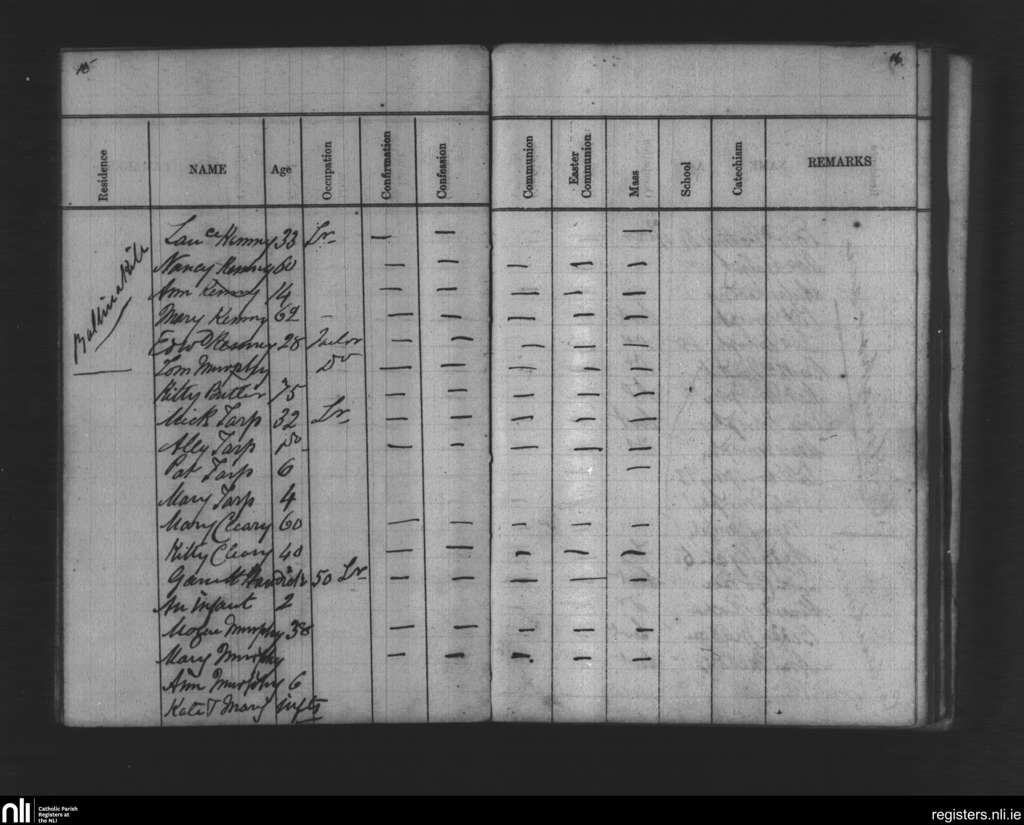 15
16
Residence NAME Age Occupation Confirmation Confession Communion Easter Communion Mass School Catechism REMARKS
Ballinakill
Lauce Kenny 33 Lr. — — —
Nancy Kenny 60 — — — — —
Ann Kenny 14 — — — — —
Mary Kenny 62 – — — — — —
Edwd Kenny 28 Tailor — — — — —
Tom Murphy Do — — — — —
Kitty Butler 75 — — — — —
Mick Tarp 32 Lr. — — — — —
Alley Tarp — — — — —
Pat Tarp 6 —
Mary Tarp 4
Mary Cleary 60 — — — — —
Kitty Cleary 40 — — — — —
Garrett 50 Lr — — — — —
An infant 2
Mogue Murphy 38 — — — — —
Mary Murphy — — — — —
Ann Murphy 6
Kate & Mary infts
nli Catholic Parish
Registers at
the NLI
registers.nli.ie